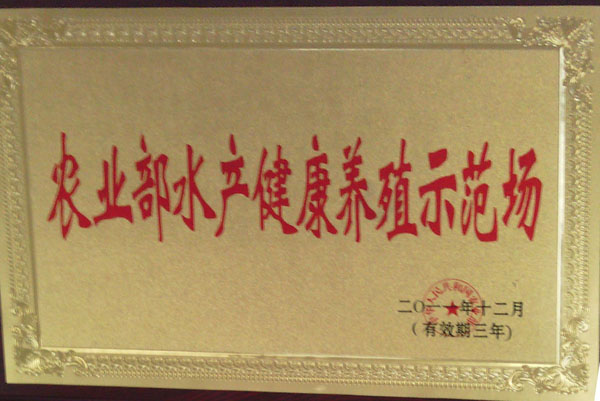 农业部水产健康养殖示范场
二〇一一年十二月
(有效期三年)